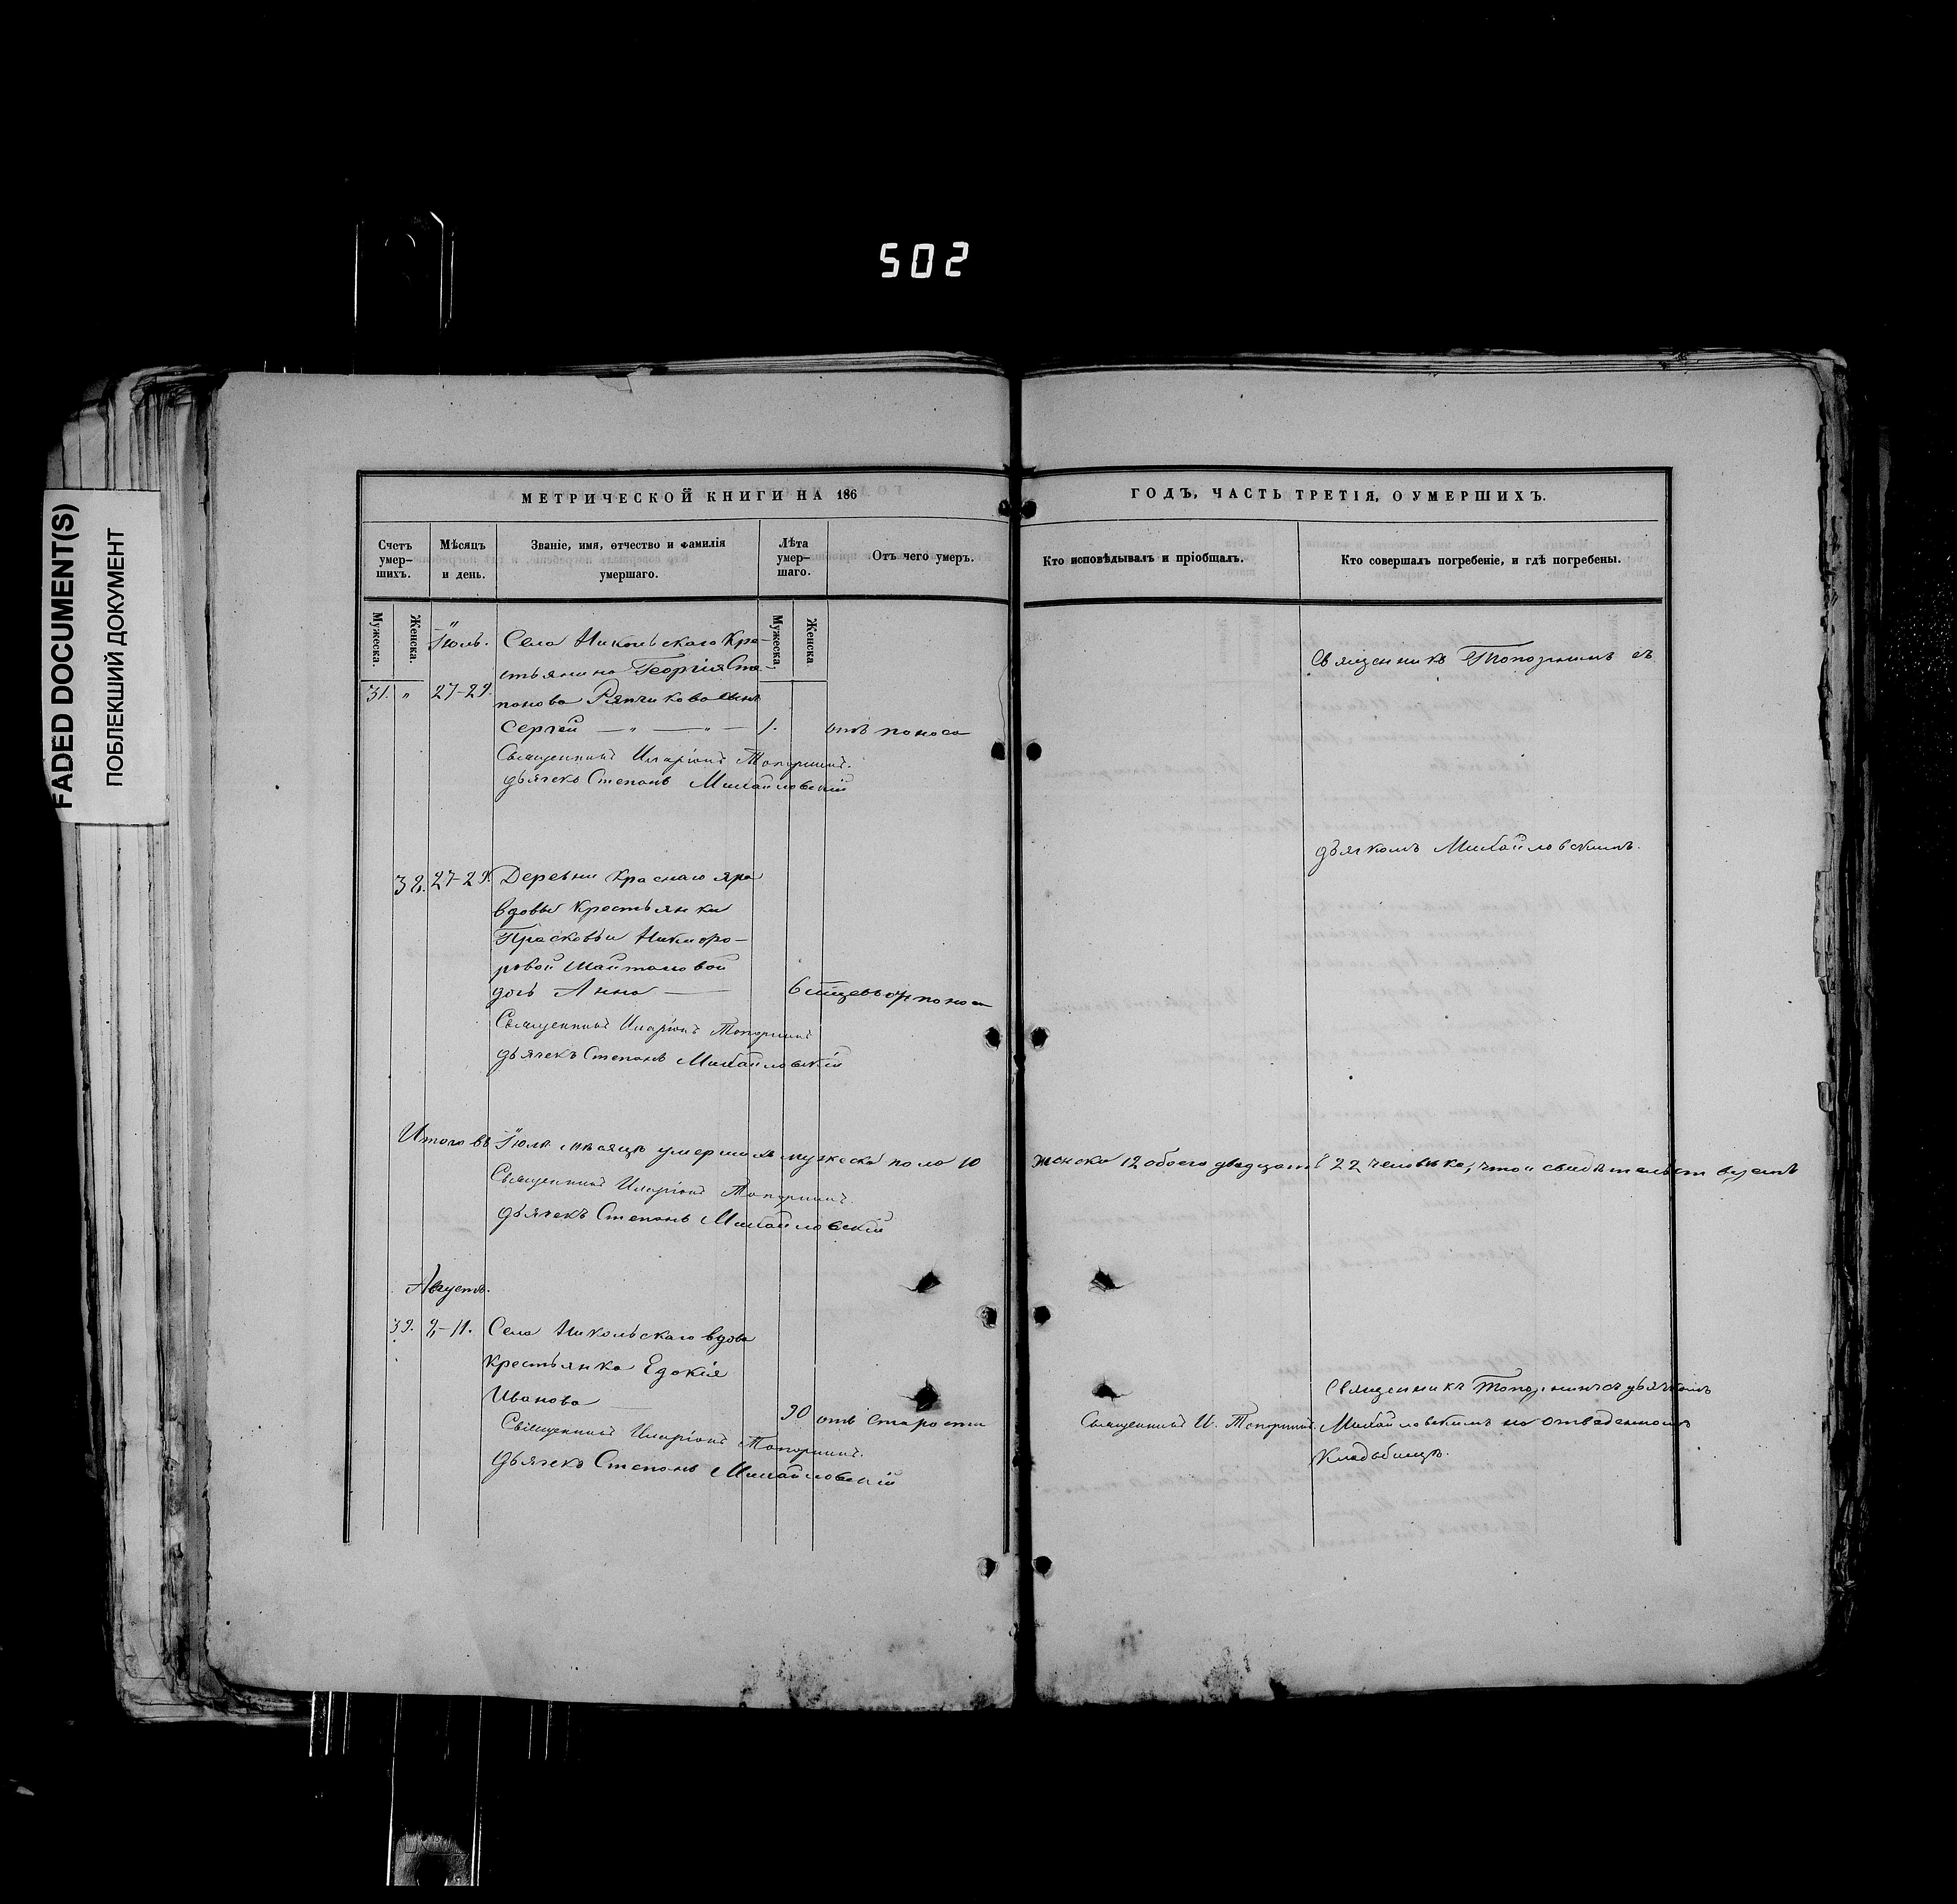 502
FADED DOCUMENT(S)
ПОБЛЕКШИЙ ДОКУМЕНТ
МЕТРИЧЕСКОЙ КНИГИ НА 186
Счетъ умер-шихъ.
Мѣсяцъ и день.
Званіе, имя, отчество и фамилія умершаго.
Лѣта умер-шаго.
Отъ чего умеръ.
Мужеска.
Женска.
Мужеска
Женска
Іюль.
Села Никольскаго Кре-
стьянина Георгія Сте
31. " 27-29.
панова сынъ
Сергей — " — " — 1. отъ поноса
Священникъ Иларіонъ Топорнинъ.
дьячекъ Степанъ Михайловскій
38. 27-29. Деревни Краснаго яра
вдовы Крестьянки
Прасковьи Никифо-
ровой Шайтановой
дочь Анна — 6 поноса
Священникъ Иларіонъ Топорнинъ
дьячекъ Степанъ Михайловскій
Итого въ Іюлѣ мѣсяцѣ умершихъ мужеска пола 10
Священникъ Иларіонъ Топорнинъ.
дьячекъ Степанъ Михайловскій
Августъ.
39. 9-11. Села Никольскаго вдова
Крестьянка Едокія
Иванова
90 отъ старости
Священникъ Иларіонъ Топорнинъ.
Дьячекъ Степанъ Михайловскій
ГОДЪ, ЧАСТЬ ТРЕТІЯ, О УМЕРШИХЪ.
Кто исповѣдывалъ и пріобщалъ.
Кто совершалъ погребеніе, и гдѣ погребены.
Священникъ Топорнинъ съ
дьячкомъ Михайловскимъ.
женска 12 обоего двадцать 22 человѣка; что и свидѣтельствуемъ
Священникъ Топорнинъ съ дьячкомъ
Священникъ И. Топорнинъ. Михайловскимъ на отведенномъ
Кладбищѣ.